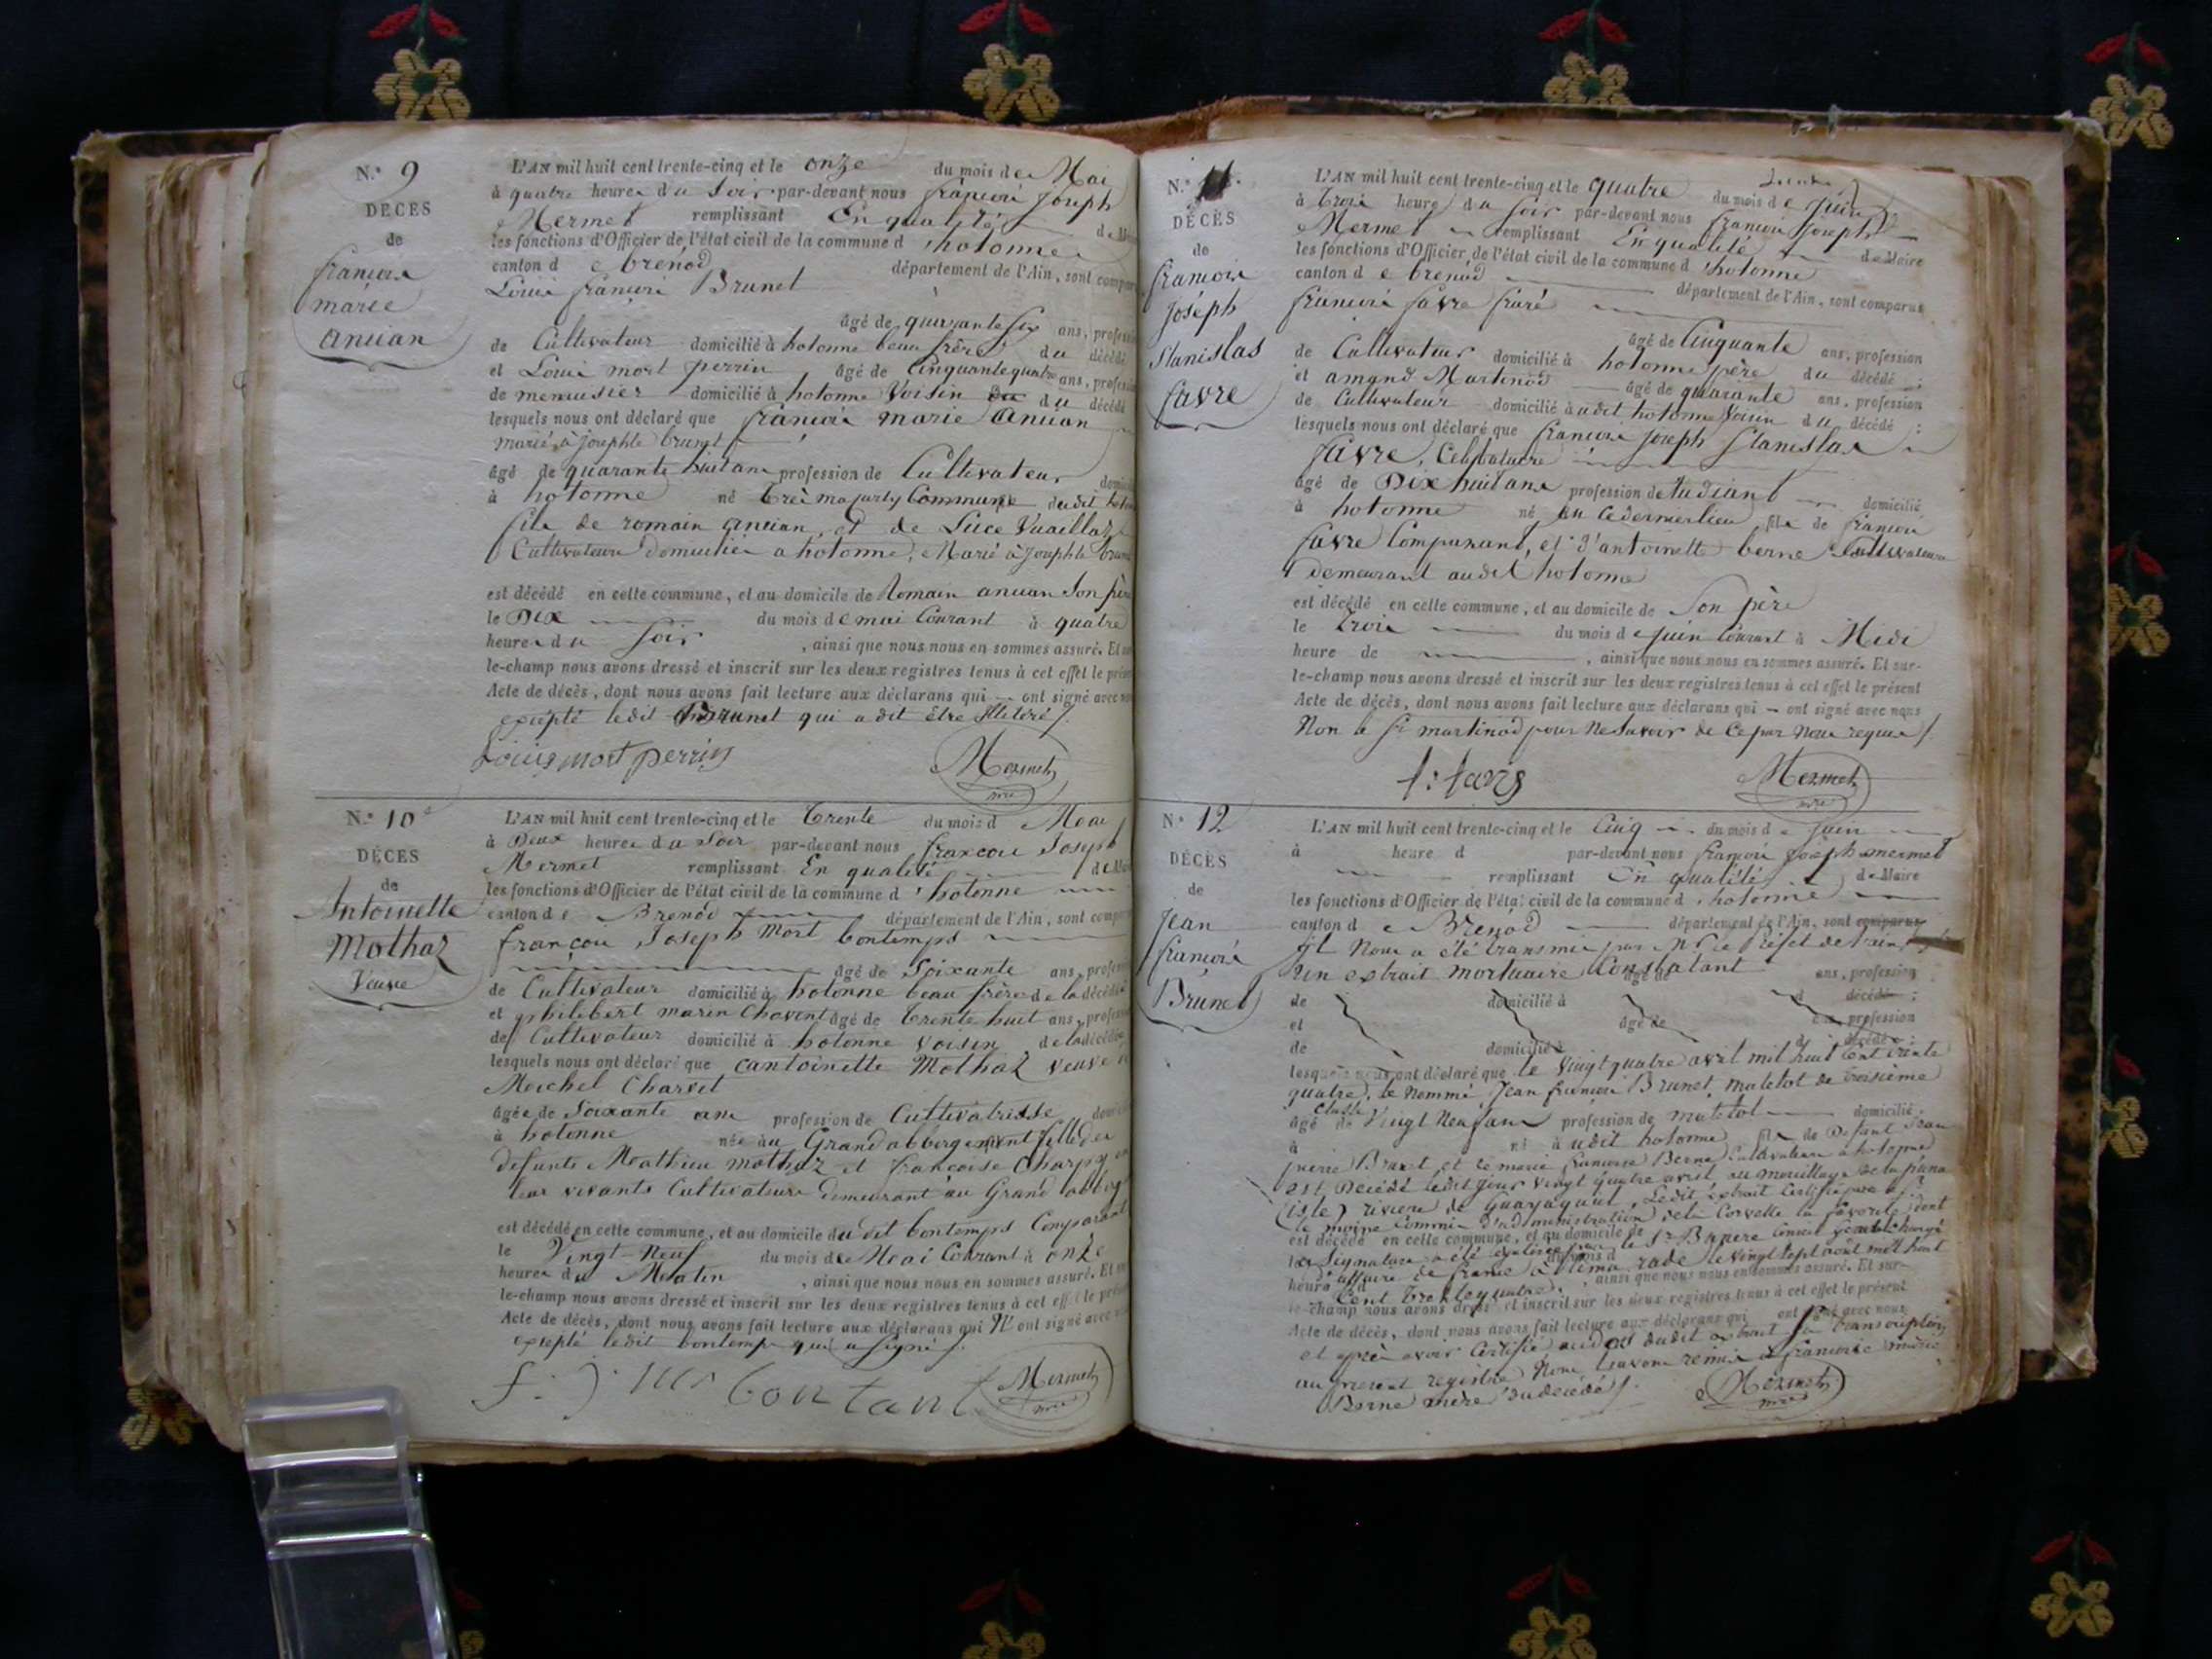 N.° 9
DÉCÈS
de
françois
marie
ancian
L'AN mil huit cent trente-cinq et le onze du mois de Mai
à quatre heures du Soir par-devant nous françois Joseph
Mermet remplissant En qualité de
les fonctions d'Officier de l'état civil de la commune d'hotonne
canton de brenod département de l'Ain, sont
Louis françois Brunet
âgé de quarante six ans,
de Cultivateur domicilié à hotonne beau frère du décédé
et Louis mort perrin âgé de Cinquante quatre ans,
de menuisier domicilié à hotonne Voisin du décédé
lesquels nous ont déclaré que françois marie ancian
marié à Josephte brunet
âgé de quarante huit ans profession de Cultivateur
à hotonne né Commune dudit
fils de romain ancian, et de Luce Vuaillat
Cultivateurs domiciliés a hotonne, Marié à Josephte
est décédé en cette commune, et au domicile de Romain ancian Son père
le Dix du mois de mai Courant à quatre
heures du Soir, ainsi que nous nous en sommes assuré. Et
le-champ nous avons dressé et inscrit sur les deux registres tenus à cet effet le
Acte de décès, dont nous avons fait lecture aux déclarans qui ont signé avec
excepté ledit Brunet qui a dit être illitéré
Louis mort perrin Mermet
N.° 10
DÉCÈS
de
Antoinette
Mothaz
Veuve
L'AN mil huit cent trente-cinq et le trente du mois d Mai
à Deux heures du Soir par-devant nous françois Joseph
Mermet remplissant En qualité de
les fonctions d'Officier de l'état civil de la commune d'hotonne
canton de Brenod département de l'Ain, sont
françois Joseph Mort bontemps
âgé de Soixante ans,
de Cultivateur domicilié à hotonne beau frère de la décédée
et philibert marin Chavent âgé de trente huit ans,
de Cultivateur domicilié à hotonne voisin de la décédée
lesquels nous ont déclaré que antoinette Mothaz veuve
Michel Charvet
âgée de Soixante ans profession de Cultivatrisse
à hotonne née au Grand abbergement fille de
defunts Mathieu mothaz et françoise Charpy
leur vivants Cultivateurs demeurant au Grand
est décédé en cette commune, et au domicile du dit bontemps Comparant
le Vingt-Neuf du mois de Mai Courant à onze
heures du Matin, ainsi que nous nous en sommes assuré. Et
le-champ nous avons dressé et inscrit sur les deux registres tenus à cet effet le
Acte de décès, dont nous avons fait lecture aux déclarans qui N'ont signé avec
excepté ledit bontemps qui a signé
Mermet
N.°
DÉCÈS
de
françois
Joséph
Stanislas
favre
L'AN mil huit cent trente-cinq et le quatre du mois de Juin
à trois heures du soir par-devant nous françois Joseph
Mermet remplissant En qualité de Maire
les fonctions d'Officier de l'état civil de la commune d'hotonne
canton de brenod département de l'Ain, sont comparus
françois favre
âgé de Cinquante ans, profession
de Cultivateur domicilié à hotonne père du décédé ;
et amand Martinod âgé de quarante ans, profession
de Cultivateur domicilié audit hotonne Voisin du décédé :
lesquels nous ont déclaré que françois Joseph Stanislas
favre, Célibataire
âgé de Dix huit ans profession d'Etudiant domicilié
à hotonne né en ce dernier lieu, fils de françois
favre Comparant, et d'antoinette berne Cultivateurs
demeurant audit hotonne
est décédé en cette commune, et au domicile de Son père
le trois du mois de juin Courant à Midi
heure de , ainsi que nous nous en sommes assuré. Et sur-
le-champ nous avons dressé et inscrit sur les deux registres tenus à cet effet le présent
Acte de décès, dont nous avons fait lecture aux déclarans qui ont signé avec nous
Non le Sr martinod pour Ne Savoir de Ce par Nous requis
Mermet
N.° 12
DÉCÈS
de
Jean
françois
Brunet
L'AN mil huit cent trente-cinq et le Cinq du mois de Juin
à heure d par-devant nous françois Joseph mermet
remplissant En qualité de Maire
les fonctions d'Officier de l'état civil de la commune d'hotonne
canton de Brenod département de l'Ain, sont comparus
Il Nous a été transmis par Mr le Préfet de l'ain
Un extrait mortuaire Constatant âgé de ans, profession
de domicilié à d décédé ;
et âgé de ans, profession
de domicilié à d décédé :
lesquels nous ont déclaré que le Vingt quatre avril mil huit Cent trente
quatre, le Nommé Jean françois Brunet, matelot de troisième
classe
âgé de Vingt Neuf ans profession de matelot domicilié
à né audit hotonne fils de Défunt Jean
pierre Brunet et de marie françoise Berne Cultivateurs à hotonne
est Décédé ledit Jour Vingt quatre avril au mouillage de la puna
(isle) riviere de Guayaquil, Ledit extrait Certifié par
le moine Commis d'administration de la Corvette la favorite, dont
est décédé en cette commune, et au domicile de
la Signature a été le Sr Consul Chargé
d'affaire de france à Lima le vingt sept août mil huit
heure d ainsi que nous nous en sommes assuré. Et sur-
Cent trente quatre.
le-champ nous avons dressé et inscrit sur les deux registres tenus à cet effet le présent
Acte de décès, dont nous avons fait lecture aux déclarans qui ont signé avec nous
et après avoir Certifié au dos dudit extrait la transcription
au present registre Nous l'avons remis à françoise marie
Berne mère du décédé
Mermet